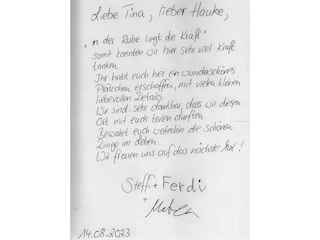 Liebe Tina, lieber Hauke,
"In der Ruhe liegt die Kraft"
somit konnten wir hier sehr viel Kraft
tanken.
Ihr habt euch hier ein wunderschönes
Plätzchen erschaffen, mit vielen kleinen
liebevollen Details.
Wir sind sehr dankbar, dass wir diesen
Ort mit euch teilen durften.
Bewahrt euch weiterhin die schönen
Dinge im Leben.
Wir freuen uns auf das nächste Mal!
Steffi + Ferdi
+
14.08.2023